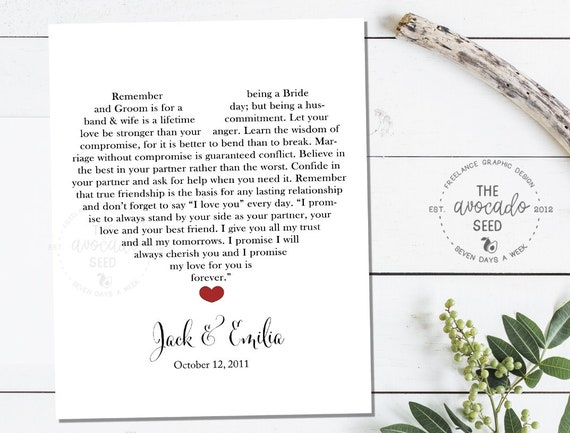 Remember being a Bride
and Groom is for a day; but being a hus-
band & wife is a lifetime commitment. Let your
love be stronger than your anger. Learn the wisdom of
compromise, for it is better to bend than to break. Mar-
riage without compromise is guaranteed conflict. Believe in
the best in your partner rather than the worst. Confide in
your partner and ask for help when you need it. Remember
that true friendship is the basis for any lasting relationship
and don't forget to say “I love you” every day. “I prom-
ise to always stand by your side as your partner, your
love and your best friend. I give you all my trust
and all my tomorrows. I promise I will
always cherish you and I promise
my love for you is
forever.”
Jack & Emilia
October 12, 2011
FREELANCE GRAPHIC DESIGN
THE
EST. avocado 2012
SEED
SEVEN DAYS A WEEK
THE
avocado
SEED
SEVEN DAYS A WEEK